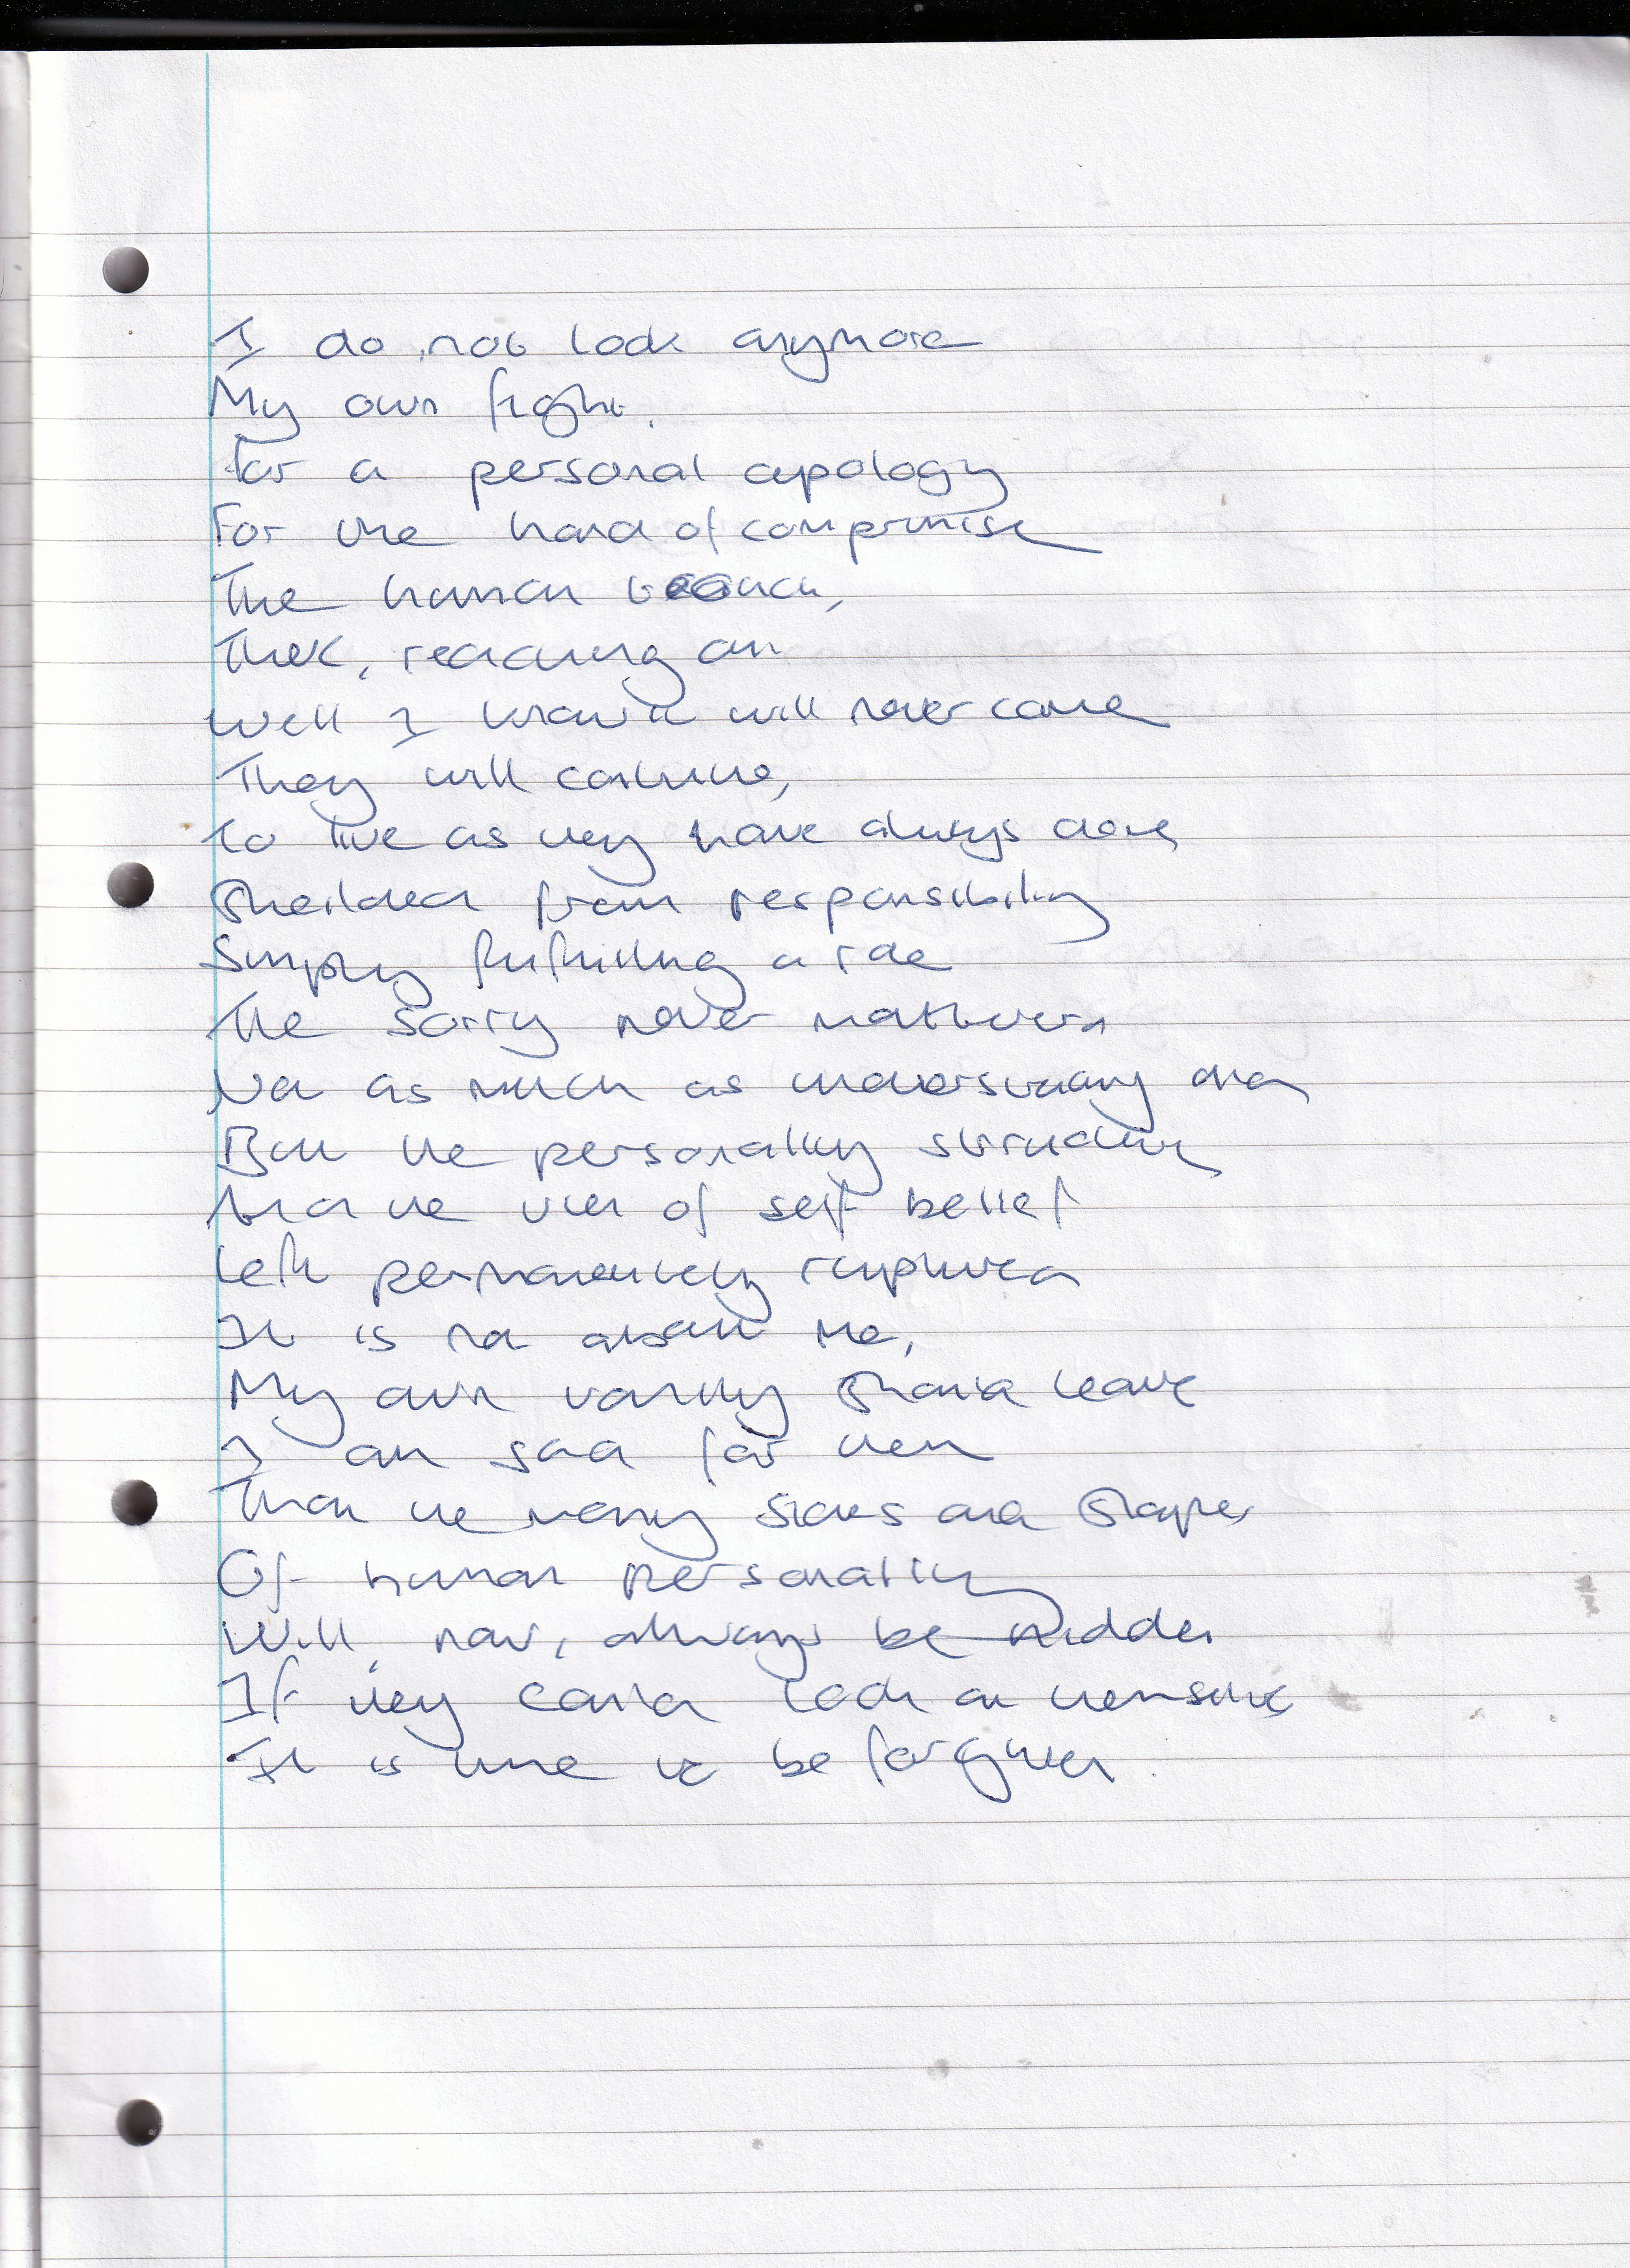 I do not look anymore
My own fight.
for a personal apology
For the hand of compromise
The human touch,
That, reaching out
Well I know it will never come
They will continue,
To live as they have always done
Sheilded from responsibility
Simply fulfilling a role
The sorry never mattered
Not as much as understanding did
But the personality structure
And the view of self belief
Left permanently ruptured
It is not about me,
My own vanity should leave
I am sad for them
That the many sides and shapes
Of human personality
Will, now, always be hidden
If they could look at themselves
It is time to be forgiven.